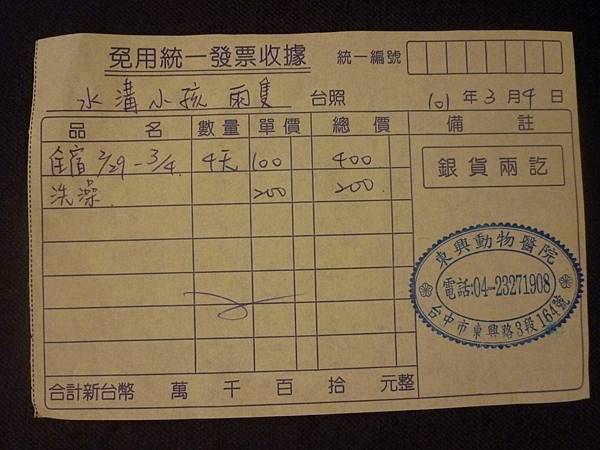 免用統一發票收據
統一編號
水溝小孩 兩隻 台照
101年3月4日
品名 數量 單價 總價 備註
住宿 2/29-3/4. 4天 100 400
洗澡. 200 200.
銀貨兩訖
東興動物醫院
電話:04-23271908
台中市東興路3段164號
合計新台幣 萬 千 百 拾 元整